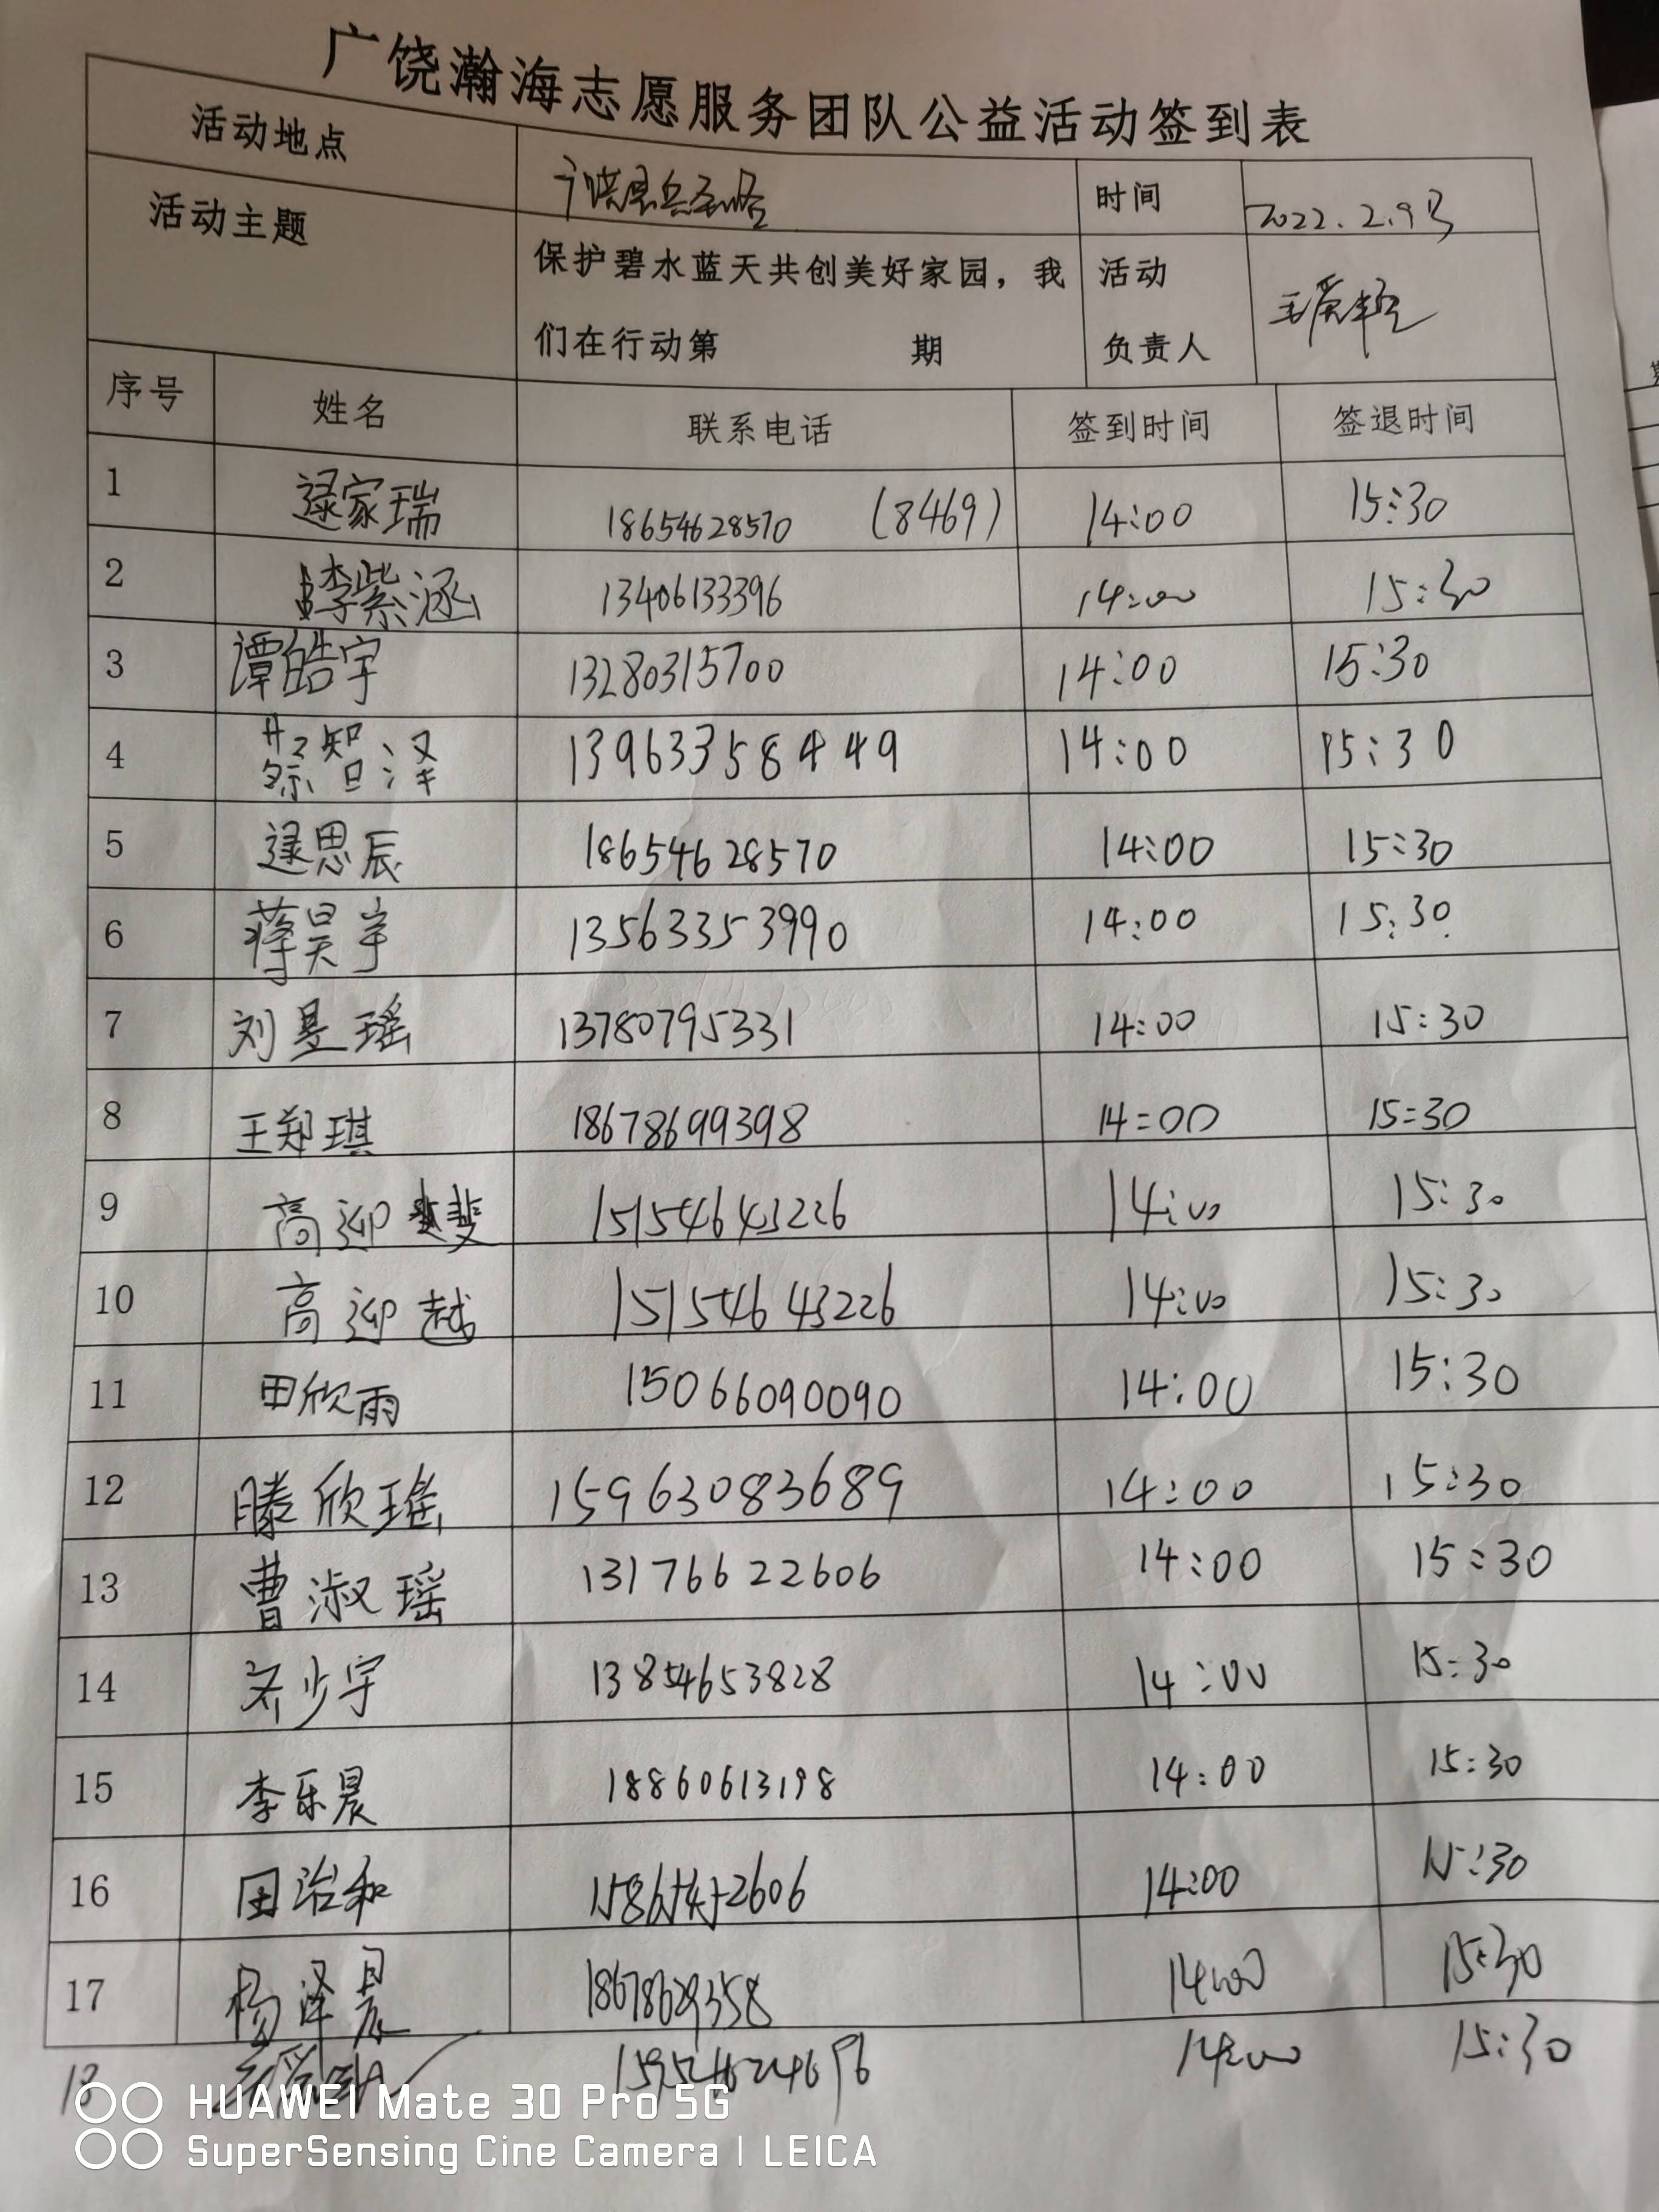 广饶瀚海志愿服务团队公益活动签到表
活动地点 广饶县兵圣路 时间 2022.2.9号
活动主题 保护碧水蓝天共创美好家园，我 活动
们在行动第 期 负责人
序号 姓名 联系电话 签到时间 签退时间
1 逯家瑞 18654628570 (8469) 14:00 15:30
2 李紫涵 13406133396 14:00 15:30
3 谭皓宇 13280315700 14:00 15:30
4 蔡智泽 13963358449 14:00 15:30
5 逯思辰 18654628570 14:00 15:30
6 蒋昊宇 13563353990 14:00 15:30
7 刘昱瑶 13780795331 14:00 15:30
8 王郑琪 18678699398 14:00 15:30
9 高迎斐 15154643226 14:00 15:30
10 高迎越 15154643226 14:00 15:30
11 田欣雨 15066090090 14:00 15:30
12 滕欣瑶 15963083689 14:00 15:30
13 曹淑瑶 13176622606 14:00 15:30
14 少宇 13854653828 14:00 15:30
15 李乐晨 18860613198 14:00 15:30
16 田治和 14:00 15:30
17 杨泽晨 14:00 15:30
18 14:00 15:30
HUAWEI Mate 30 Pro 5G
SuperSensing Cine Camera | LEICA